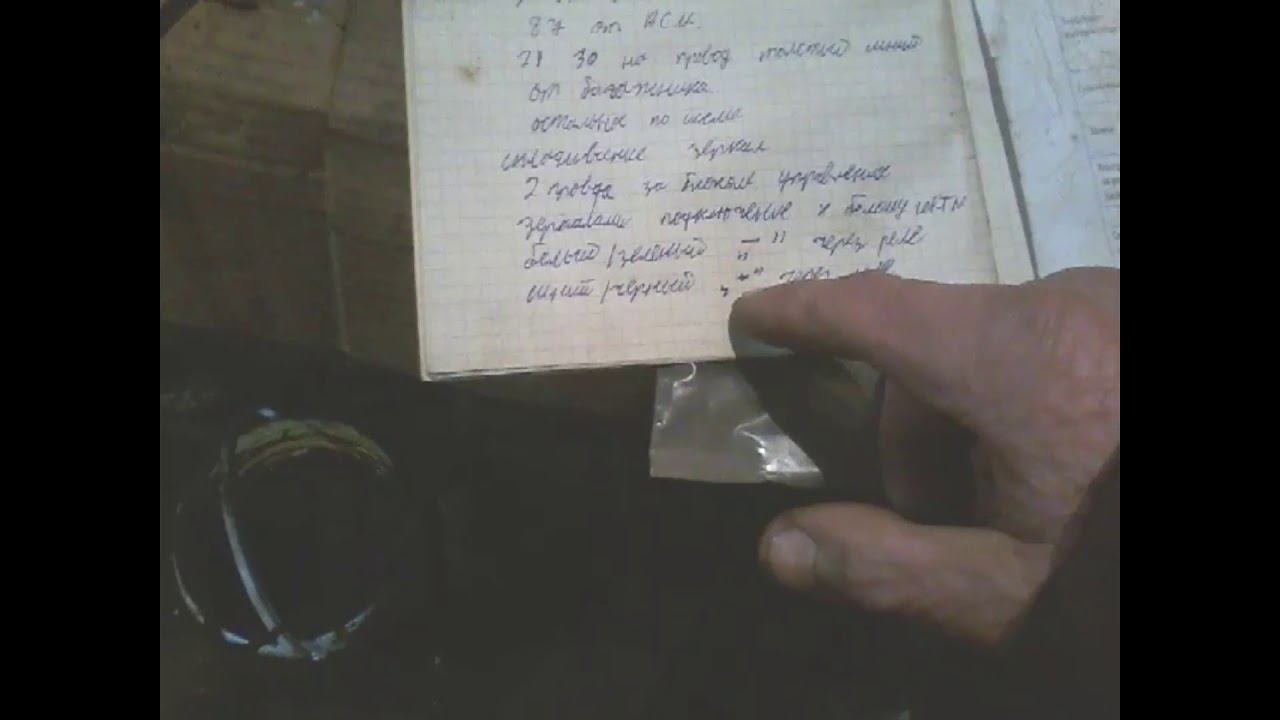 87 от АСИ.
21 30 на провод толстый синий
от багажника
остальное по схеме
складывание зеркал
2 провода за блоком управления
зеркалами подключение к белому
белый/зеленый "—" через реле
синий/черный "+" через